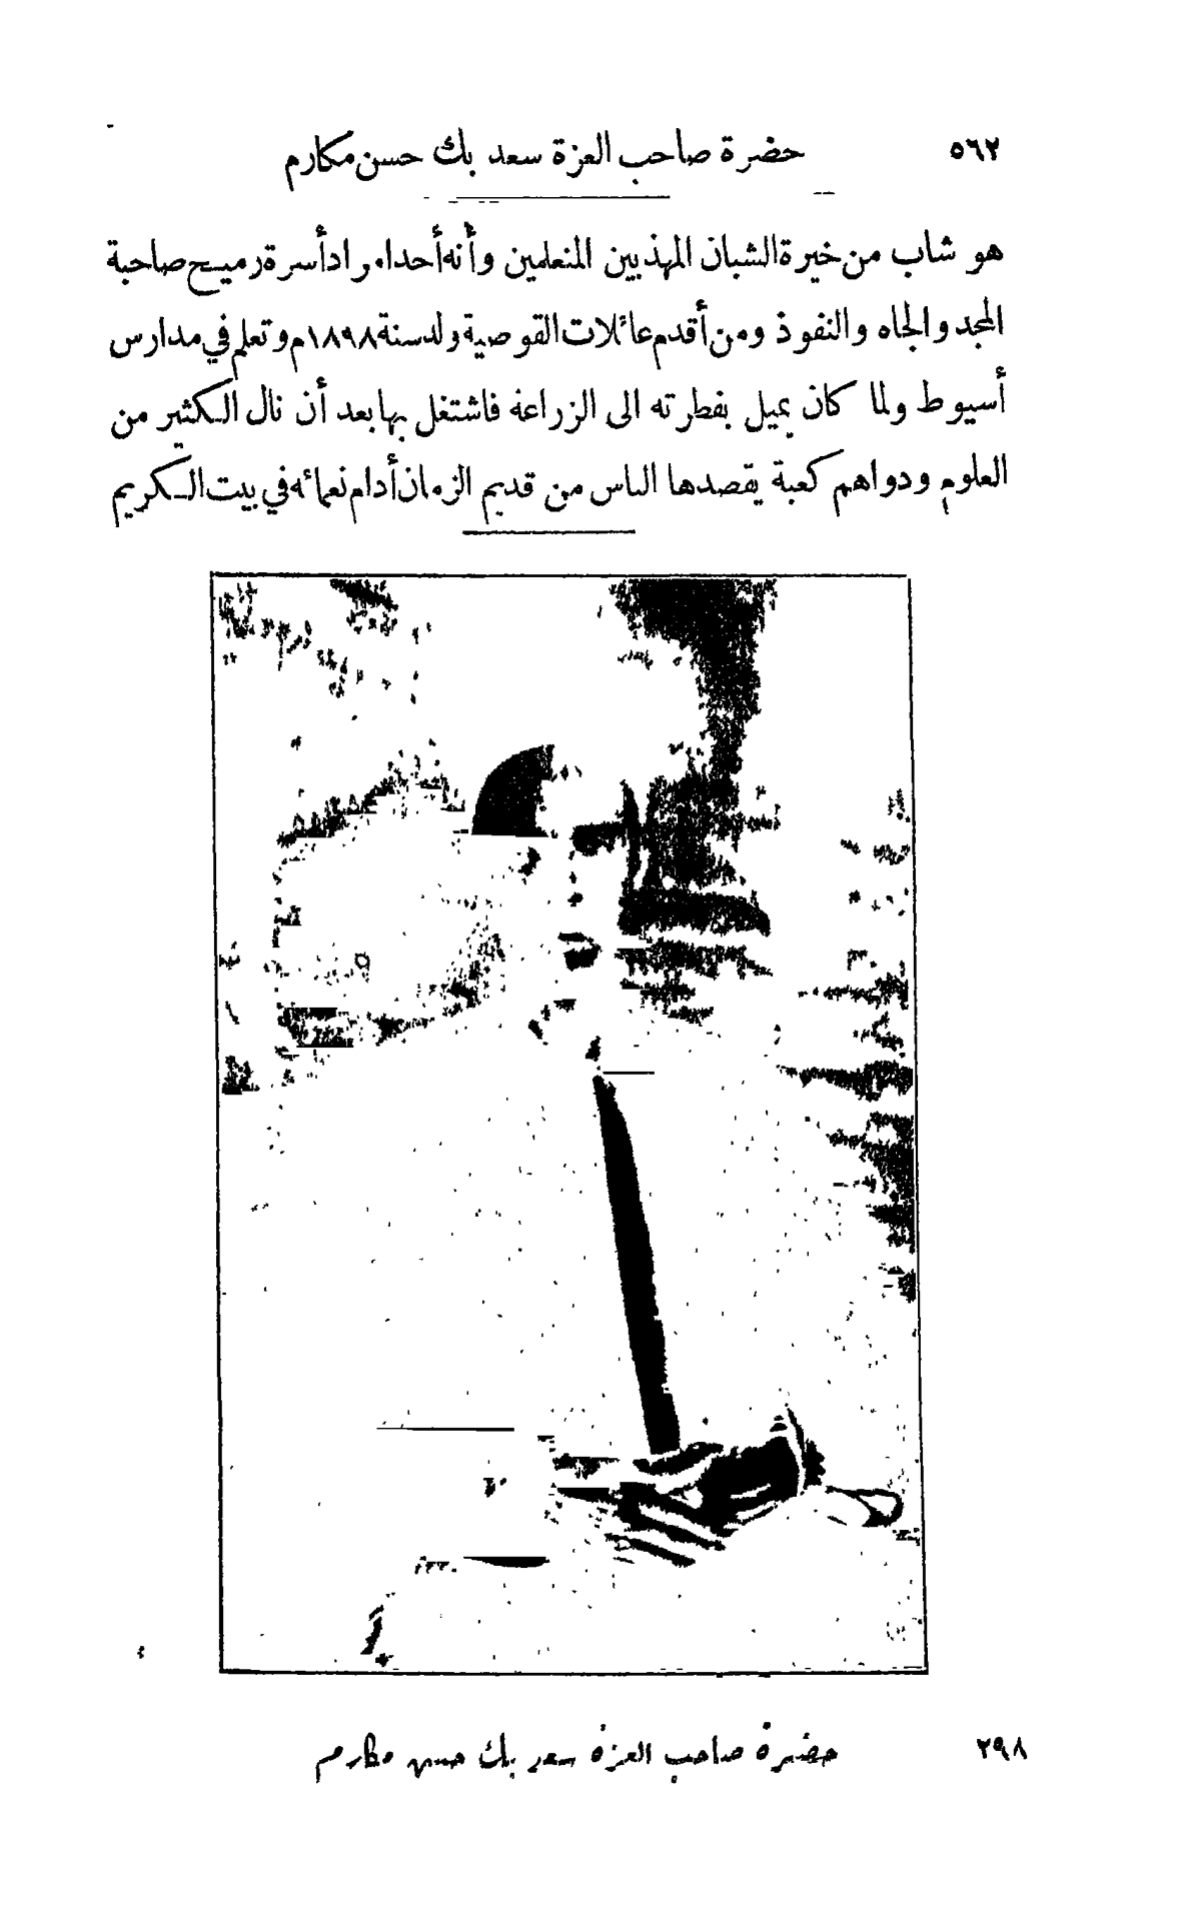 ٥٦٢
حضرة صاحب العزة سعد بك حسن مكارم
هو شاب من خيرة الشبان المهذبين المتعلمين وأنه أحد افراد أسرة رميح صاحبة
المجد والجاه والنفوذ ومن أقدم عائلات القوصية ولد سنة ١٨٩٨م وتعلم في مدارس
أسيوط ولما كان يميل بفطرته الى الزراعة فاشتغل بها بعد أن نال الكثير من
العلوم ودواهم كعبة يقصدها الناس من قديم الزمان أدام نعمائه في بيت الكريم
حضرة صاحب العزة سعد بك حسن مكارم
٢٩٨